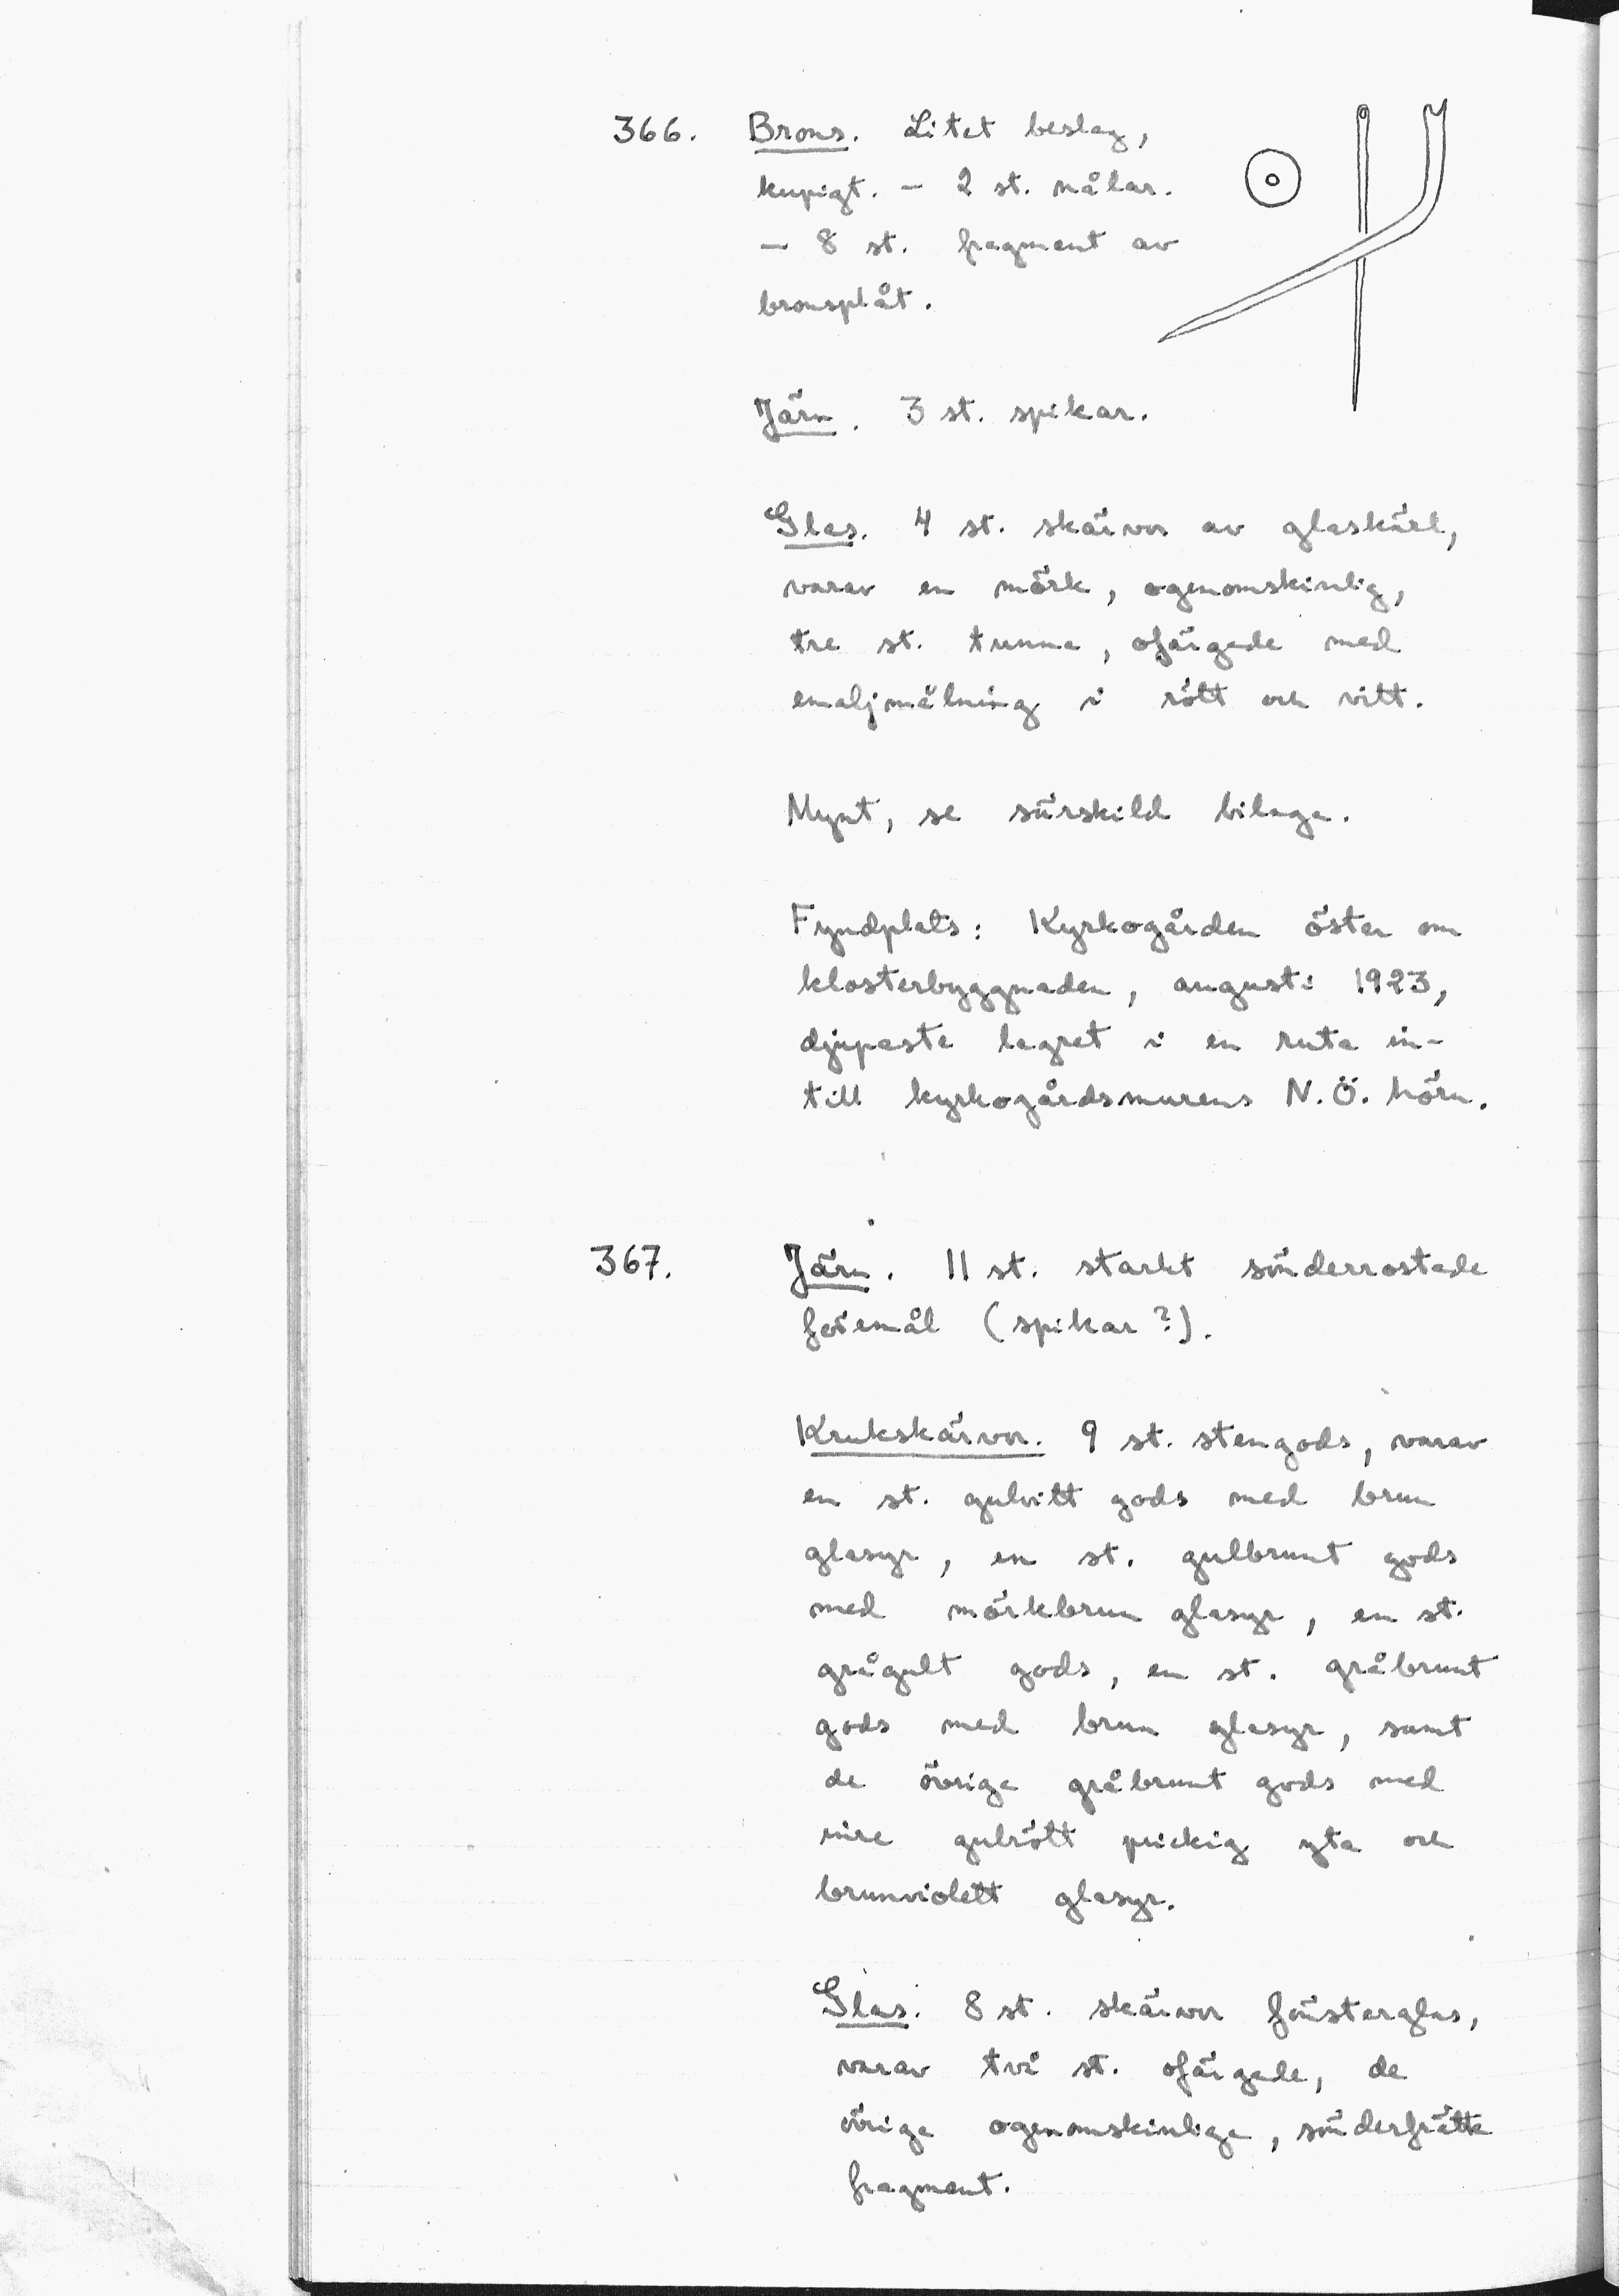 366. Brons. Litet beslag,
kupigt. – 2 st. nålar.
– 8 st. fragment av
bronsplåt.
Järn. 3 st. spikar.
Glas. 4 st. skärvor av glaskärl,
varav en mörk, ogenomskinlig,
tre st. tunna, ofärgade med
emaljmålning i rött och vitt.
Mynt, se särskild bilaga.
Fyndplats: Kyrkogården öster om
klosterbyggnaden, augusti 1923,
djupaste lagret i en ruta in-
till kyrkogårdsmurens N.Ö. hörn.
367. Järn. 11 st. starkt sönderrostade
föremål (spikar?).
Krukskärvor. 9 st. stengods, varav
en st. gulvitt gods med brun
glasyr, en st. gulbrunt gods
med mörkbrun glasyr, en st.
grågult gods, en st. gråbrunt
gods med brun glasyr, samt
de övriga gråbrunt gods med
inre gulrött prickig yta och
brunviolett glasyr.
Glas. 8 st. skärvor fönsterglas,
varav två st. ofärgade, de
övriga ogenomskinliga, sönderfrätta
fragment.